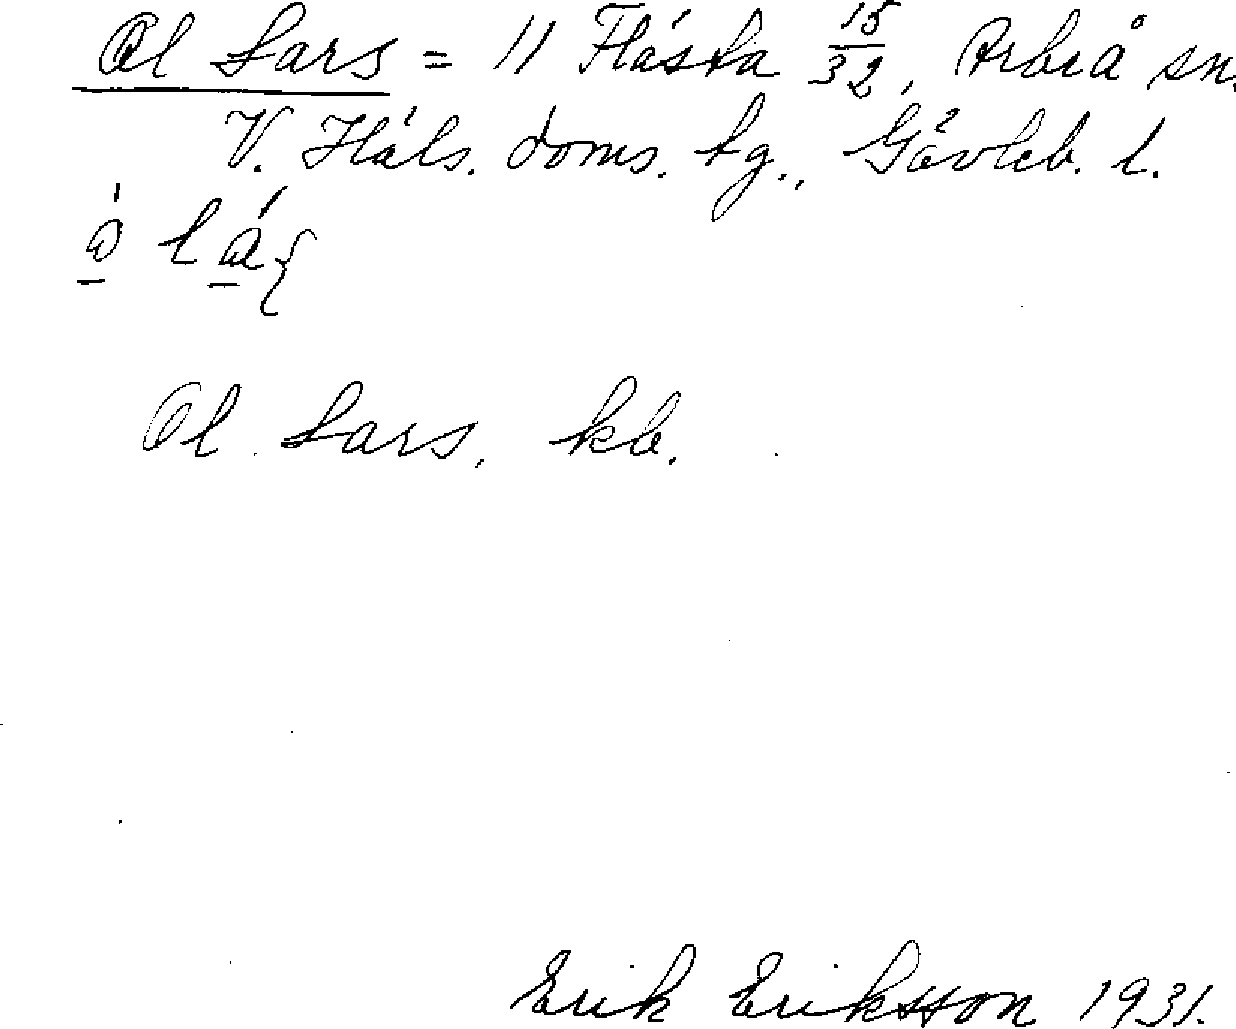 Ol Lars = 11 Flästa 15/32, Arbrå sn.
V. Häls. doms. tg., Gävleb. l.
Ol Lars, kb.
Erik Eriksson 1931.